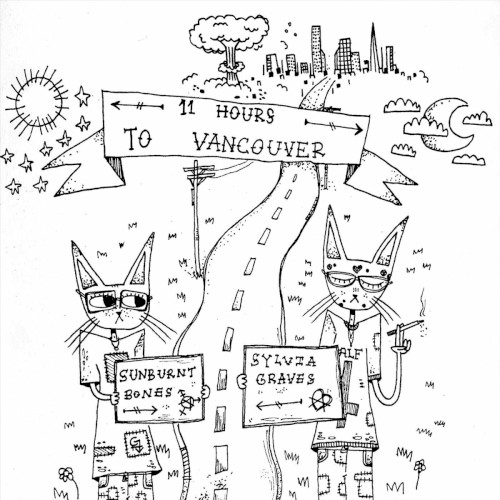 11 HOURS
TO VANCOUVER
SUNBURNT
BONES
SYLVIA
GRAVES
ALF
G